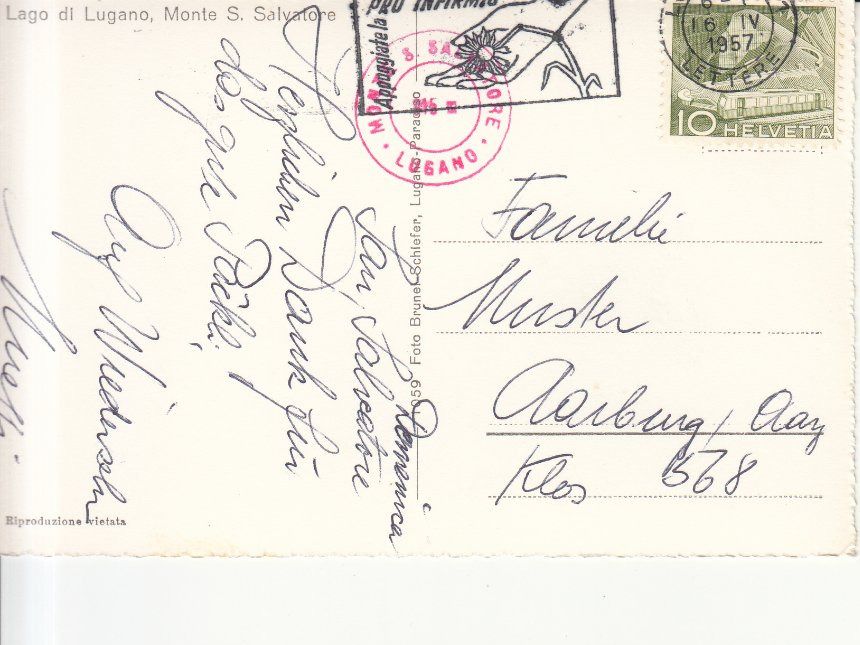 Lago di Lugano, Monte S. Salvatore
PRO INFIRMIS
Appoggiate la
MONTE S. SALVATORE
LUGANO
16 IV
1957
LETTERE
10 HELVETIA
1059 Foto Brunel Schiefer, Lugano-Paradiso
San Salvatore
Domenica
Herzlichen Dank für
das gute Päckli
Auf Wiedersehn
Familie
Muster
Aarburg / Aarg
Klos 568
Riproduzione vietata